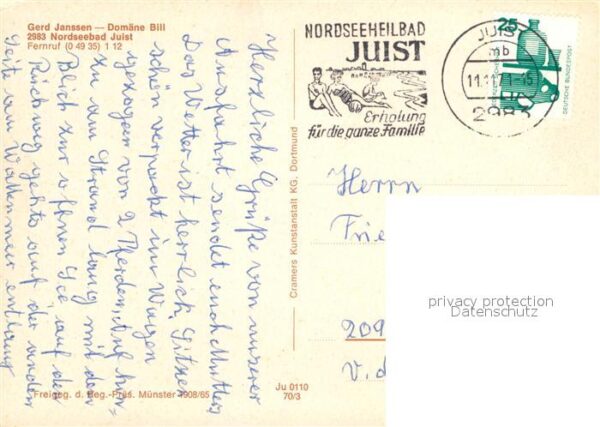 Gerd Janssen — Domäne Bill
2983 Nordseebad Juist
Fernruf (0 49 35) 1 12
Herzliche Grüße von unserer
Ausfahrt sendet euch Mutter,
Das Wetter ist herrlich, sitzen
schön verpackt im Wagen
gezogen von 2 Pferden, Auf hin-
z. am Strand lang mit dem
Blick zur offnen See auf dem
Rückweg gehts auf der andern
Seite am Wattenmeer entlang
Freigeg. d. Reg.-Präs. Münster 1908/65
Cramers Kunstanstalt KG. Dortmund
Ju 0110
70/3
NORDSEEHEILBAD
JUIST
Erholung
für die ganze Familie
JUIS
mb
11.11.71-15
2983
25
DEUTSCHE BUNDESPOST
Herrn
Frie
209
v. d
privacy protection
Datenschutz